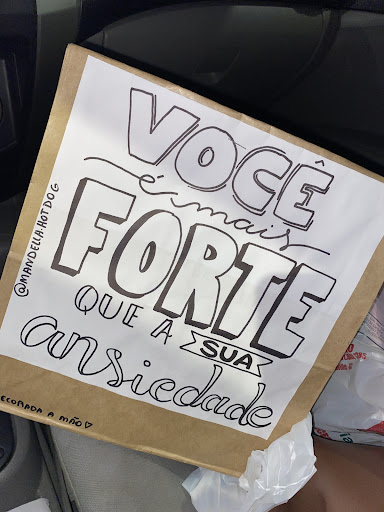 VOCÊ
é mais
FORTE
QUE A SUA
ansiedade
@MANDELLA.HOTDOG
ECORADA A MÃO♡